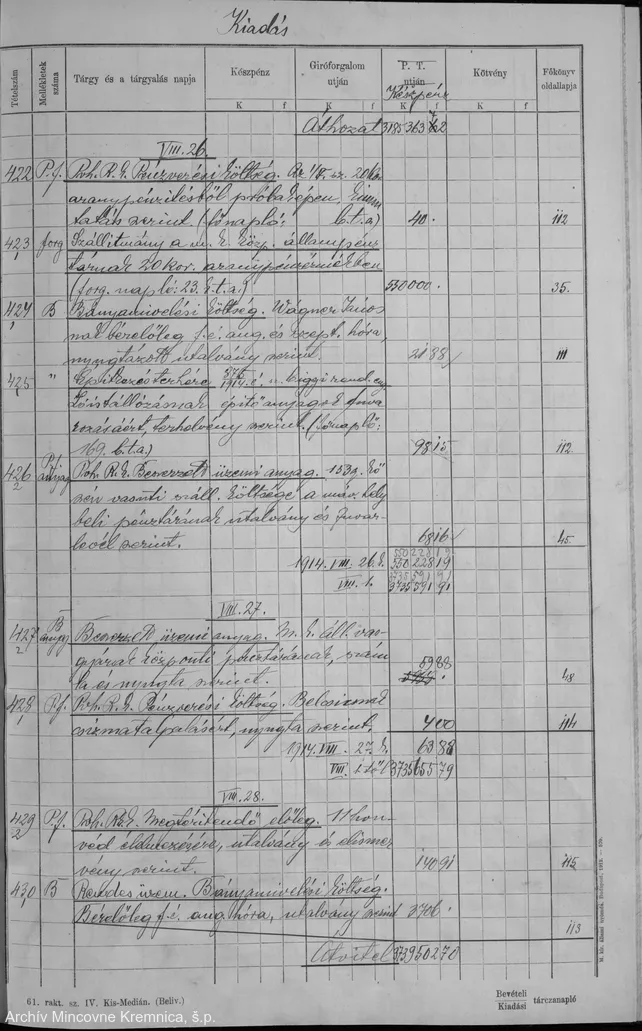 Kiadás
Tételszám
Mellékletek száma
Tárgy és a tárgyalás napja
Készpénz
Giróforgalom útján
P. T. útján
Készpénz
Kötvény
Főkönyv oldallapja
K f K f K f K f
Áthozat 3185363 62
VIII. 26.
422 P.f. Poh. R. k. Pénzverési költség. Az sz. 20 kor.
aranypénzítésből próbaképen
tatás szerint. (főnapló: b.t.a) 40. 112
423 forg Szállítmány a m. k. közp. állampénz
tárnak 20 kor. aranypénzérmékben
(forg. napló: 23. b.t.a.) 550000. 35.
424 B Bányamívelési költség. Wágner János
nak bérelőleg f. é. aug. és szept. hóra,
nyugtázott utalvány szerint. 2188 111
425 "
építőanyagok fuva
rozásáért, terhelvény szerint. (főnapló:
169. b.t.a) 9815 112
426 P.f. anyag Poh. R. k. Beszerzett üzemi anyag.
vasuti száll. költsége a máv. hely
beli pénztárának utalvány és fuvar-
levél szerint. 6816 45.
1914. VIII. 26. 55022819
55022819
VIII. 1. 373559191
373559191
VIII. 27.
427 B anyag Beszerzett üzemi anyag. M. k. áll. vas-
gyárak központi pénztárának, szám
la és nyugta szerint. 5988 48
428 P.f. Poh. R. k. Pénzverési költség.
csizmatalpalásért, nyugta szerint. 400 114
1914. VIII. 27. 6388
VIII. 1 től 373565579
VIII. 28.
429 P.f. Poh. R. k. Megtérítendő előleg. 11 hon-
véd élelmezésére, utalvány és elismer
vény szerint. 14091 115
430 B Rendes üzem. Bányamívelési költség.
Bérelőleg f. é. aug. hóra, utalvány szerint 3706. 113
Átvitel 373950270
61. rakt. sz. IV. Kis-Medián. (Beliv.)
Bevételi
Kiadási tárczanapló
Archív Mincovne Kremnica, š.p.